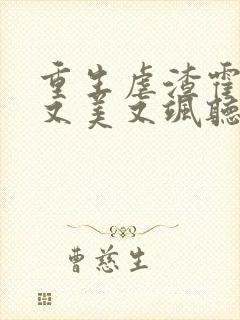 重生虐渣霍
又美又飒聽
曹慈生